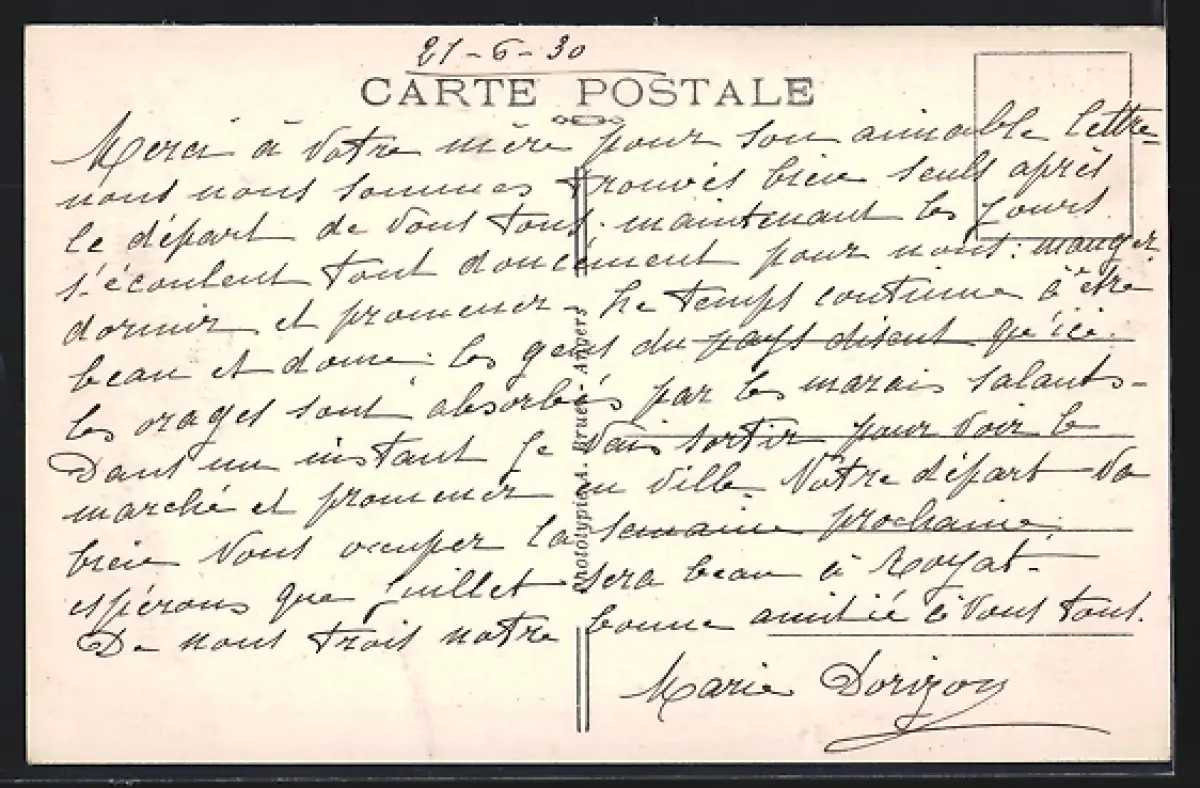 21-6-30
CARTE POSTALE
Merci à votre mère pour son aimable lettre-
nous nous sommes trouvés bien seuls après
le départ de vous tous. maintenant les jours
s'écoulent tout doucement pour nous: manger
dormir et promener - Le temps continue à être
beau et doux: les gens du pays disent qu'ici
les orages sont absorbés par les marais salants-
Dans un instant je vais sortir pour voir le
marché et promener en ville. Votre départ va
bien vous occuper la semaine prochaine.
espérons que juillet sera beau à Royat-
De nous trois notre bonne amitié à vous tous.
Marie Dorizon
Phototypie A. Bruel - Angers